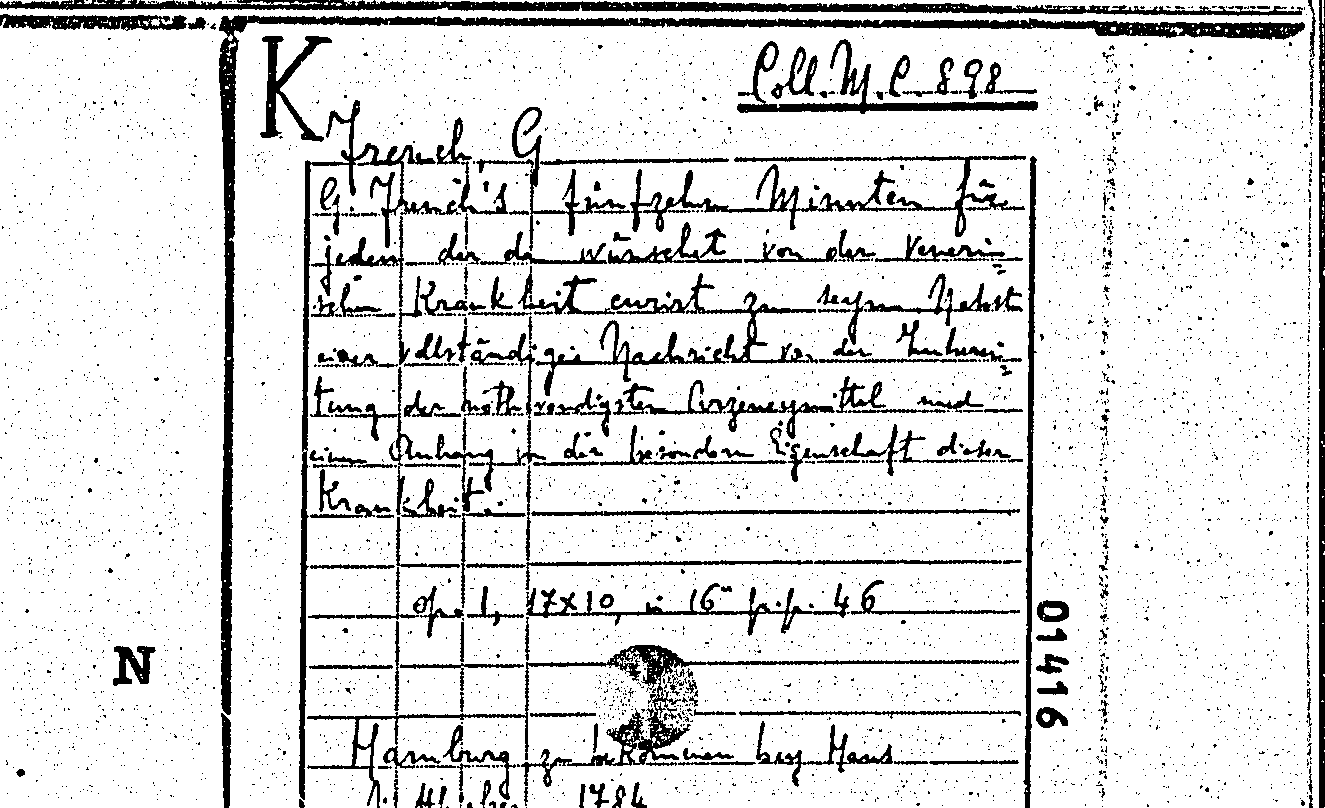 K
Coll. M. C. 898
French, G
G. French's fünfzehn Minuten für
jeden der da wünschet von der veneri=
schen Krankheit curirt zu seyn. Nebst
einer vollständigen Nachricht von der Zuberei=
tung der nothwendigsten Arzeneymittel und
einem Anhang von der besondern Eigenschaft dieser
Krankheit.
op. 1, 17x10, in 16° p.p. 46
N
01416
Hamburg zu bekommen bey Hans
1784